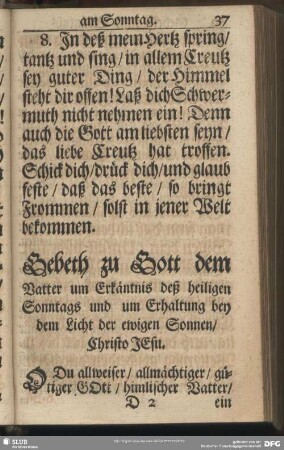 am Sonntag. 37
8. In deß mein Hertz spring/
tantz und sing/ in allem Creutz
sey guter Ding/ der Himmel
steht dir offen! Laß dich Schwer-
muth nicht nehmen ein! Denn
auch die Gott am liebsten seyn/
das liebe Creutz hat troffen.
Schick dich/ drück dich/ und glaub
feste/ daß das beste/ so bringt
Frommen/ solst in jener Welt
bekommen.
Gebeth zu Gott dem
Vatter um Erkäntnis deß heiligen
Sonntags und um Erhaltung bey
dem Licht der ewigen Sonnen/
Christo JEsu.
O Du allweiser/ allmächtiger/ gü-
tiger GOtt/ himlischer Vatter/
D 2 ein
SLUB
DFG